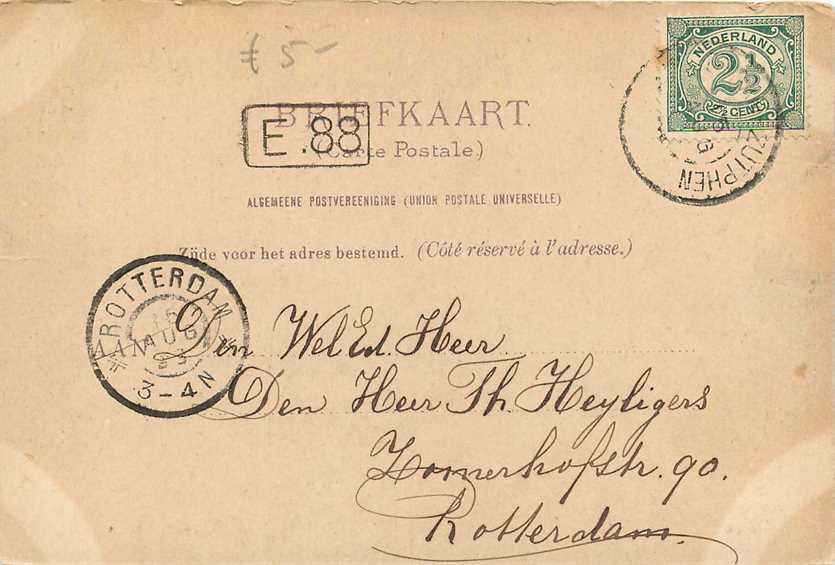 £ 5-
NEDERLAND
2½
2½ CENT
ZUTPHEN
BRIEFKAART.
E.88
(Carte Postale.)
ALGEMEENE POSTVEREENIGING (UNION POSTALE UNIVERSELLE)
Zijde voor het adres bestemd. (Côté réservé à l'adresse.)
ROTTERDAM
AUG
3-4N
AAN
Den Wel Ed. Heer
Den Heer Th. Heyligers
Zomerhofstr. 90.
Rotterdam.